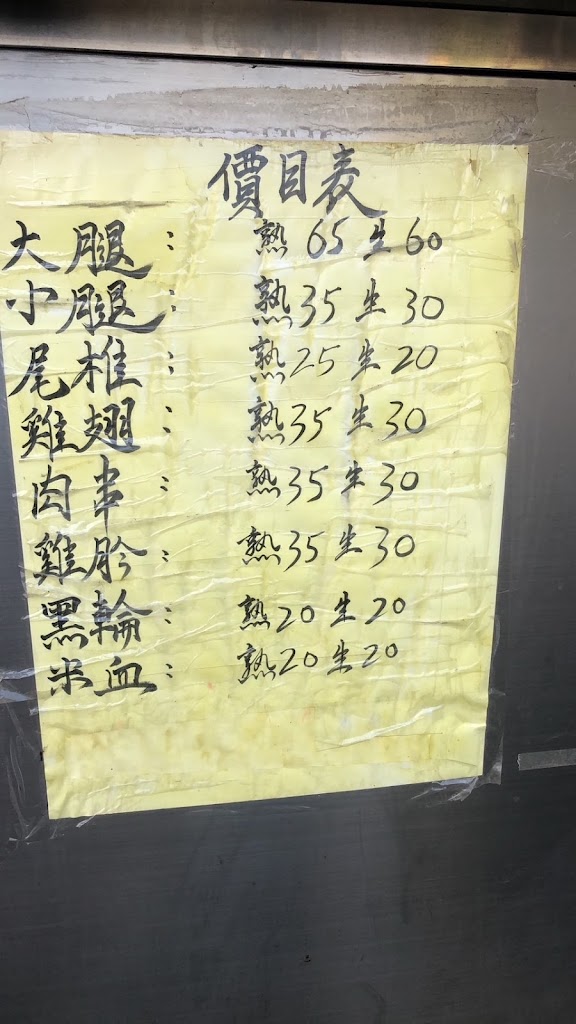 價目表
大腿：熟65生60
小腿：熟35生30
尾椎：熟25生20
雞翅：熟35生30
肉串：熟35生30
雞肣：熟35生30
黑輪：熟20生20
米血：熟20生20